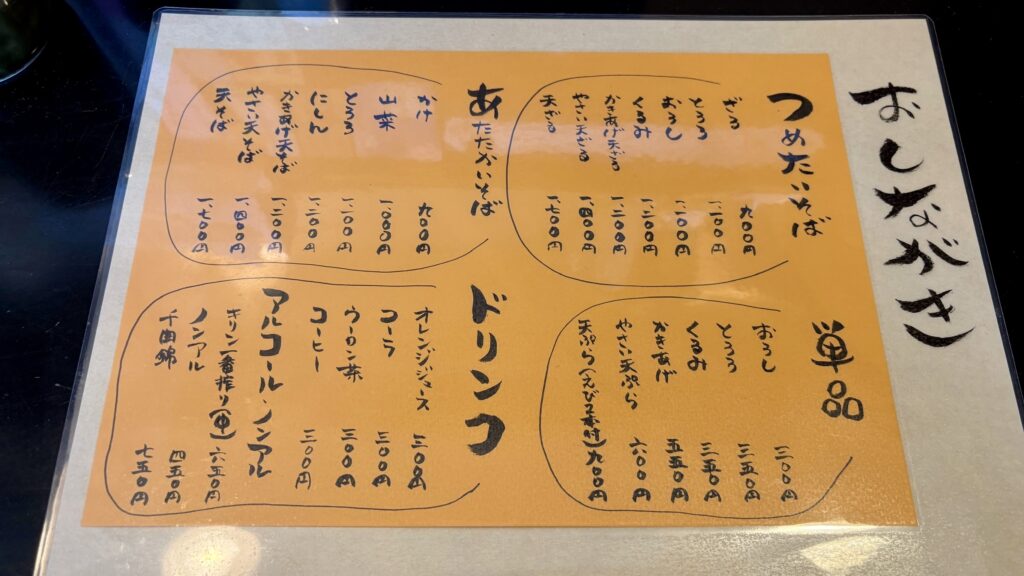 おしながき
つめたいそば
ざる 九〇〇円
とろろ 一、一〇〇円
おろし
くるみ 一、二〇〇円
かきあげ天ざる 一、二〇〇円
やさい天ざる 一、四〇〇円
天ざる 一、七〇〇円
あたたかいそば
かけ 九〇〇円
山菜 一、〇〇〇円
とろろ 一、一〇〇円
にしん 一、二〇〇円
かきあげ天そば 一、二〇〇円
やさい天そば 一、四〇〇円
天そば 一、七〇〇円
単品
おろし
とろろ
くるみ 三五〇円
かきあげ 五五〇円
やさい天ぷら 六〇〇円
天ぷら(えび2本付)九〇〇円
ドリンク
オレンジジュース 三〇〇円
コーラ 三〇〇円
ウーロン茶 三〇〇円
コーヒー 三〇〇円
アルコール・ノンアル
キリン一番搾り(中) 六五〇円
ノンアル 四五〇円
千曲錦 七五〇円